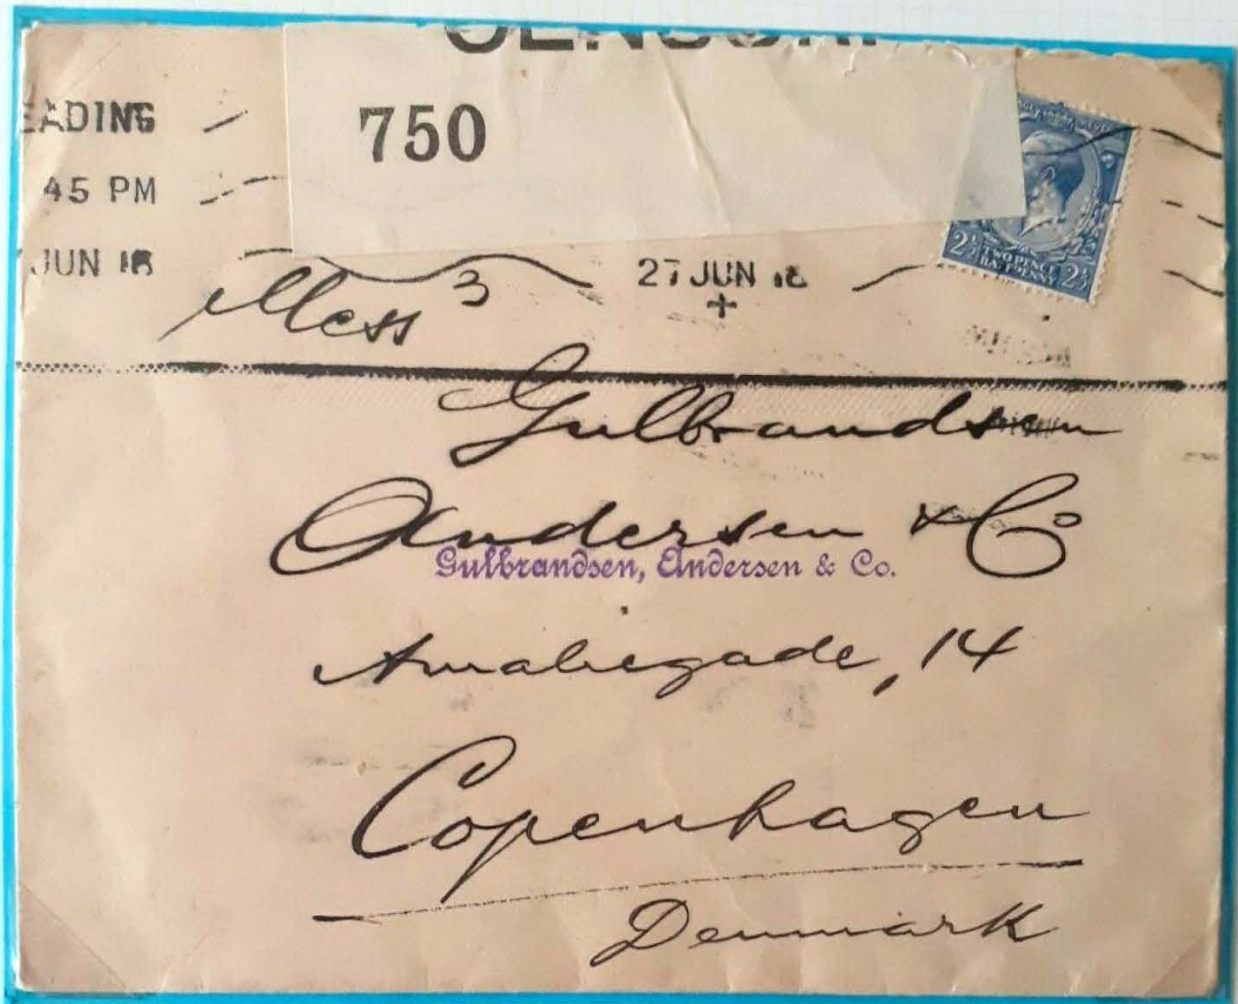 CENSOR.
750
EADING
45 PM
JUN 16
27 JUN 16
3
TWO PENCE
HALFPENNY
2½ 2½
Mess
Gulbrandsen
Andersen & Co
Gulbrandsen, Andersen & Co.
Amaliegade, 14
Copenhagen
Denmark